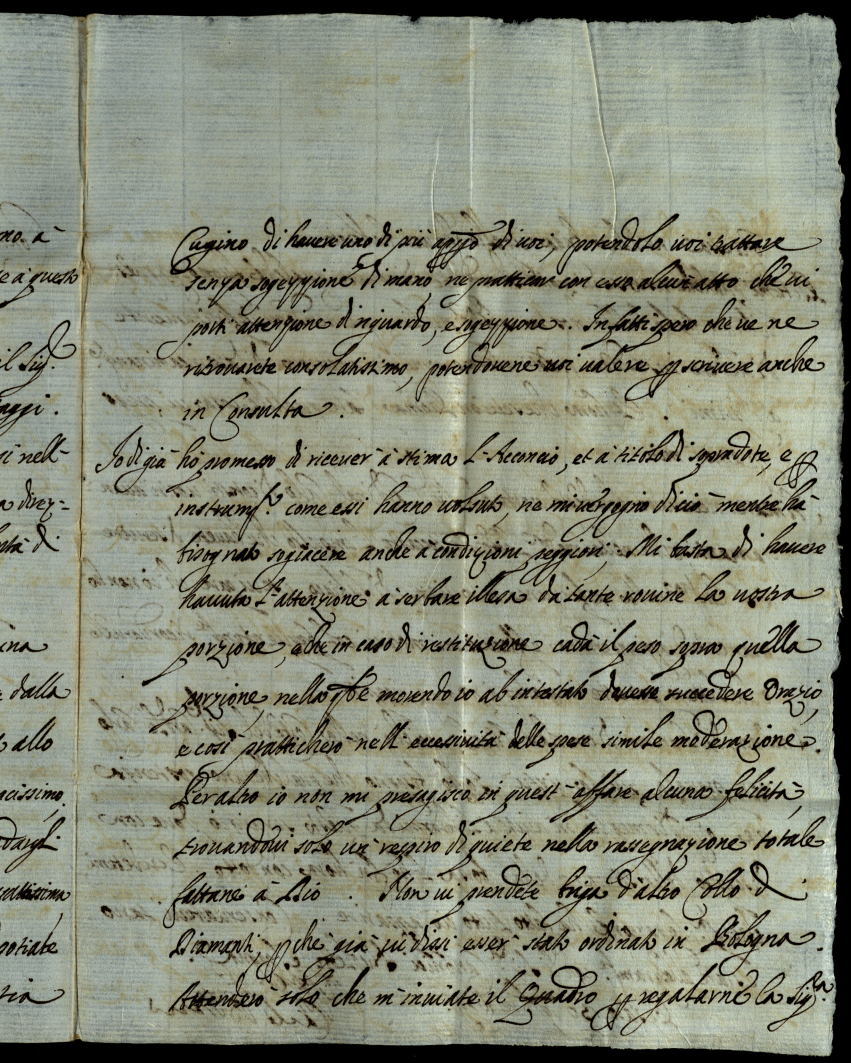 no à
e a questo
il Sig.r
aggi.
si nell'
a direz=
ltà di
una
e dalla
allo
acissimo,
dargli
potiate
ria
Cugino di havere uno di più appo di voi, potendolo voi trattare
senza sogezzione di mano, ne pratticar con esso alcun atto che vi
porti attenzione di riguardo, e sogezzione. Infatti spero che ve ne
ritrovarete consolatissimo, potendovene voi valere p scrivere anche
in Consulta.
Io di già hò promesso di ricever à stima l'Acconcio, et à titolo di sopradote, e p
instrum.to come essi hanno voluto, ne mi vergogno di ciò mentre hà
bisognato sogiacere anche a condizioni peggiori. Mi basta di havere
havuta l'attenzione à serbare illesa da tante rovine la nostra
porzione, e che in caso di restituzione cada il peso sopra quella
porzione, nella qle morendo io ab intestato dovesse succedere Orazio,
e così pratticherò nell'eccessività delle spese simile moderazione.
Per altro io non mi presagisco in quest'affare alcuna felicità,
trovandovi solo un respiro di quiete nella rassegnazione totale
fattane à Dio. Non vi prendete briga d'altro Collo di
Diamanti, p che già vi dissi esser stato ordinato in Bologna.
Attenderò solo che m'inviate il Quadro p regalarne la Sig.ra